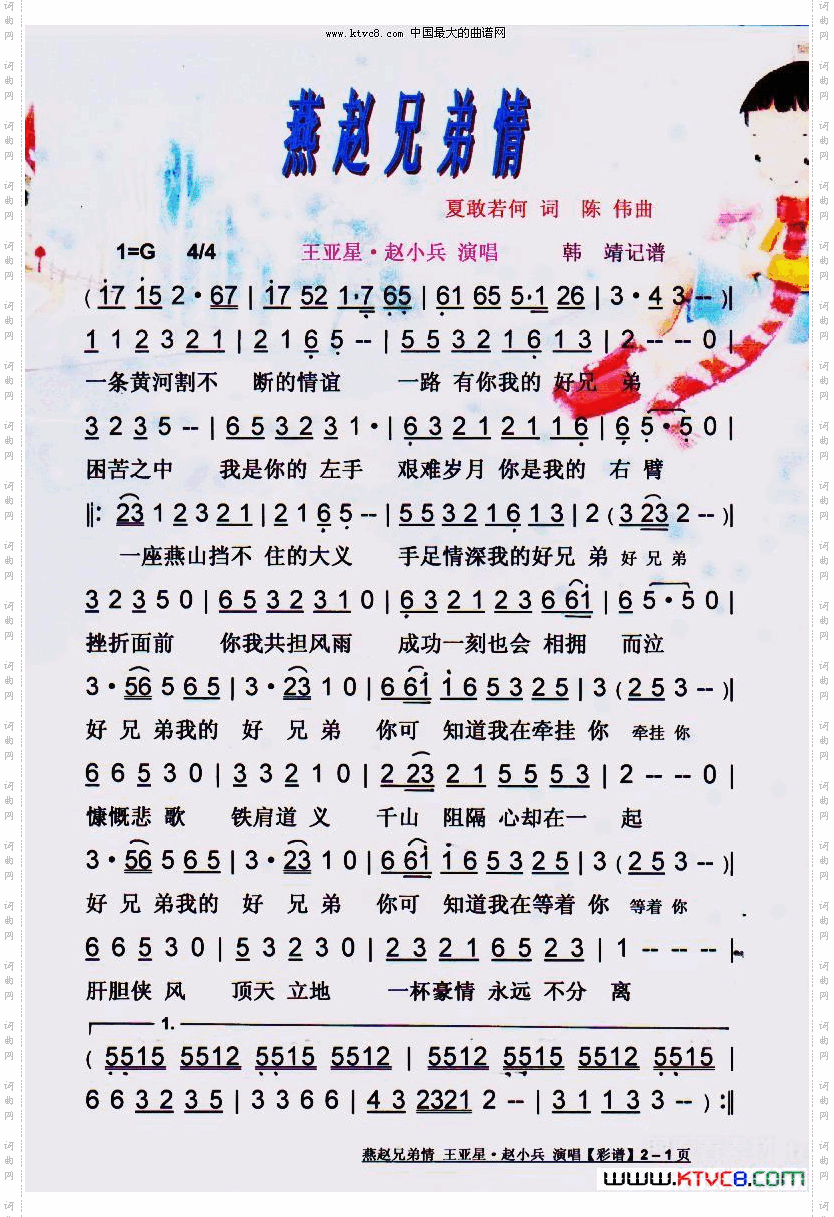 www.ktvc8.com 中国最大的曲谱网
燕赵兄弟情
夏敢若何 词 陈 伟曲
1=G 4/4 王亚星·赵小兵 演唱 韩 靖记谱
( i7 i5 2·67 | i7 52 1·7 65 | 61 65 5·1 26 | 3·4 3 -- )|
1 1 2 3 2 1 | 2 1 6 5 -- | 5 5 3 2 1 6 1 3 | 2 -- -- 0 |
一条黄河割不 断的情谊 一路 有你我的 好兄 弟
3 2 3 5 -- | 6 5 3 2 3 1 · | 6 3 2 1 2 1 1 6 | 6 5·5 0 |
困苦之中 我是你的 左手 艰难岁月 你是我的 右 臂
||: 23 1 2 3 2 1 | 2 1 6 5 -- | 5 5 3 2 1 6 1 3 | 2 ( 3 23 2 -- )|
一座燕山挡不 住的大义 手足情深我的好兄 弟 好 兄 弟
3 2 3 5 0 | 6 5 3 2 3 1 0 | 6 3 2 1 2 3 6 6i | 6 5·5 0 |
挫折面前 你我共担风雨 成功一刻也会 相拥 而泣
3·56 5 6 5 | 3·23 1 0 | 6 6i i 6 5 3 2 5 | 3 ( 2 5 3 -- )|
好 兄 弟我的 好 兄 弟 你可 知道我在牵挂 你 牵挂 你
6 6 5 3 0 | 3 3 2 1 0 | 2 23 2 1 5 5 5 3 | 2 -- -- 0 |
慷慨悲 歌 铁肩道 义 千山 阻隔 心却在一 起
3·56 5 6 5 | 3·23 1 0 | 6 6i i 6 5 3 2 5 | 3 ( 2 5 3 -- )|
好 兄 弟我的 好 兄 弟 你可 知道我在等着 你 等着 你
6 6 5 3 0 | 5 3 2 3 0 | 2 3 2 1 6 5 2 3 | 1 -- -- -- |
肝胆侠 风 顶天 立地 一杯豪情 永远 不分 离
1.
( 5515 5512 5515 5512 | 5512 5515 5512 5515 |
6 6 3 2 3 5 | 3 3 6 6 | 4 3 2321 2 -- | 3 1 1 3 3 -- ) :||
燕赵兄弟情 王亚星·赵小兵 演唱【彩谱】2－1页
www.KTVC8.com
词曲网